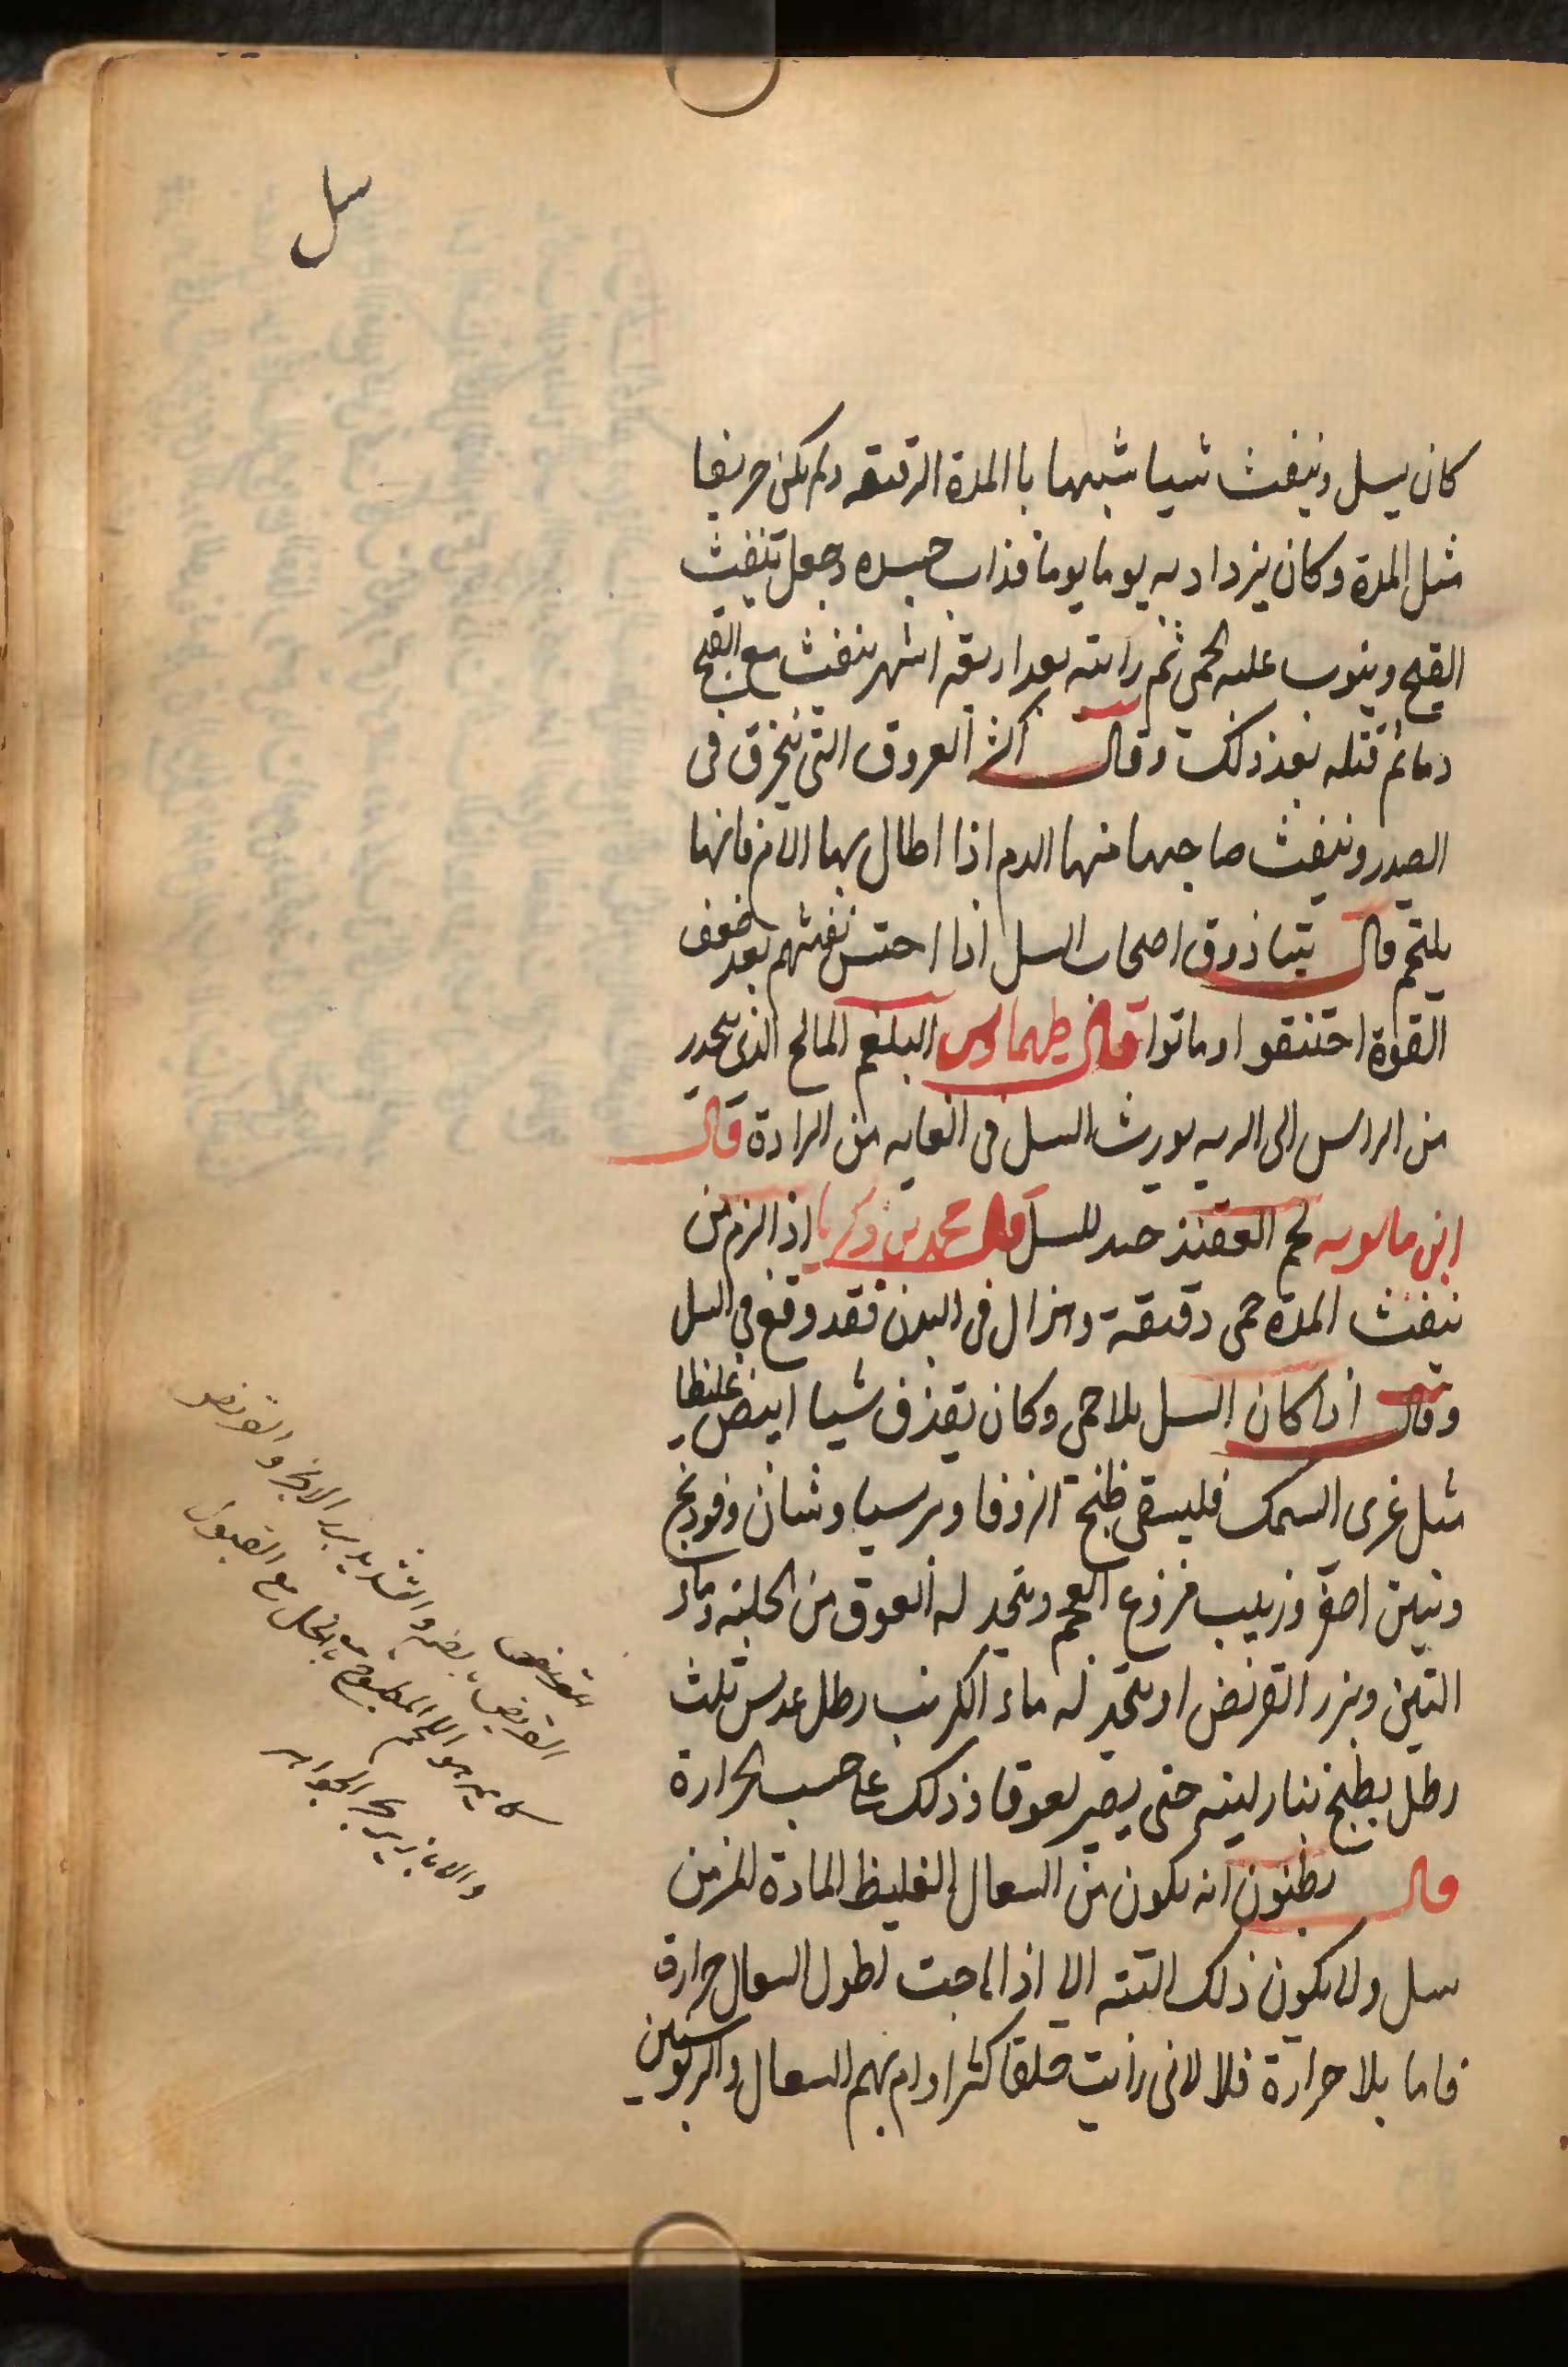 سل
كان يسل وينفث شيا شبيها با المدة الرقيقه ولم يكن حريفا
مثل المدة وكان يزداد به يوما يوما فذاب جسده وجعل ينفث
القيح وينوب عليه الحمى ثم رايته بعد اربعة اشهر ينفث مع القيح
دما ثم قتله بعد ذلك وقال اكثر العروق التى ينخرق فى
الصدر وينفث صاحبها منها الدم اذا اطال بها الامر فانها
يلتحم قال تياذوق اصحاب السل اذا احتبس نفثهم بعد ضعف
القوة اختنقوا وماتوا قال طيماوس البلغم المالح الذى ينحدر
من الراس الى الريه يورث السل فى الغايه من الرادة قال
ابن ماسويه لحم القنفذ جيد للسل قال محمد بن زكريا اذا لزم من
ينفث المدة حمى دقيقة وهزال فى البدن فقد وقع فى السل
وقال اذا كان السل بلا حمى وكان يقذف شيا ابيض غليظا
مثل غرى السمك فليسقى طبيخ الزوفا وبرسياوشان وفودنج
وتين اصفر وزبيب منزوع العجم ويتخذ له لعوق من الحلبة وماء
التين وبزر القريض او يتخذ له ماء الكرنب رطل عدس ثلث
رطل يطبخ بنار لينه حتى يصير لعوقا وذلك على حسب الحرارة
قال يظنون انه يكون من السعال الغليظ المادة المزمن
سل ولا يكون ذلك البته الا اذا هاجت لطول السعال حرارة
فاما بلا حرارة فلا لانى رايت خلقا كثيرا دام بهم السعال والربو سنين
القريص
القريض بالضم والتشديد بزر الانجره والقريص
كامير هو اللحم المطبوخ بالخل مع البقول
والابازير بحر الجواهر